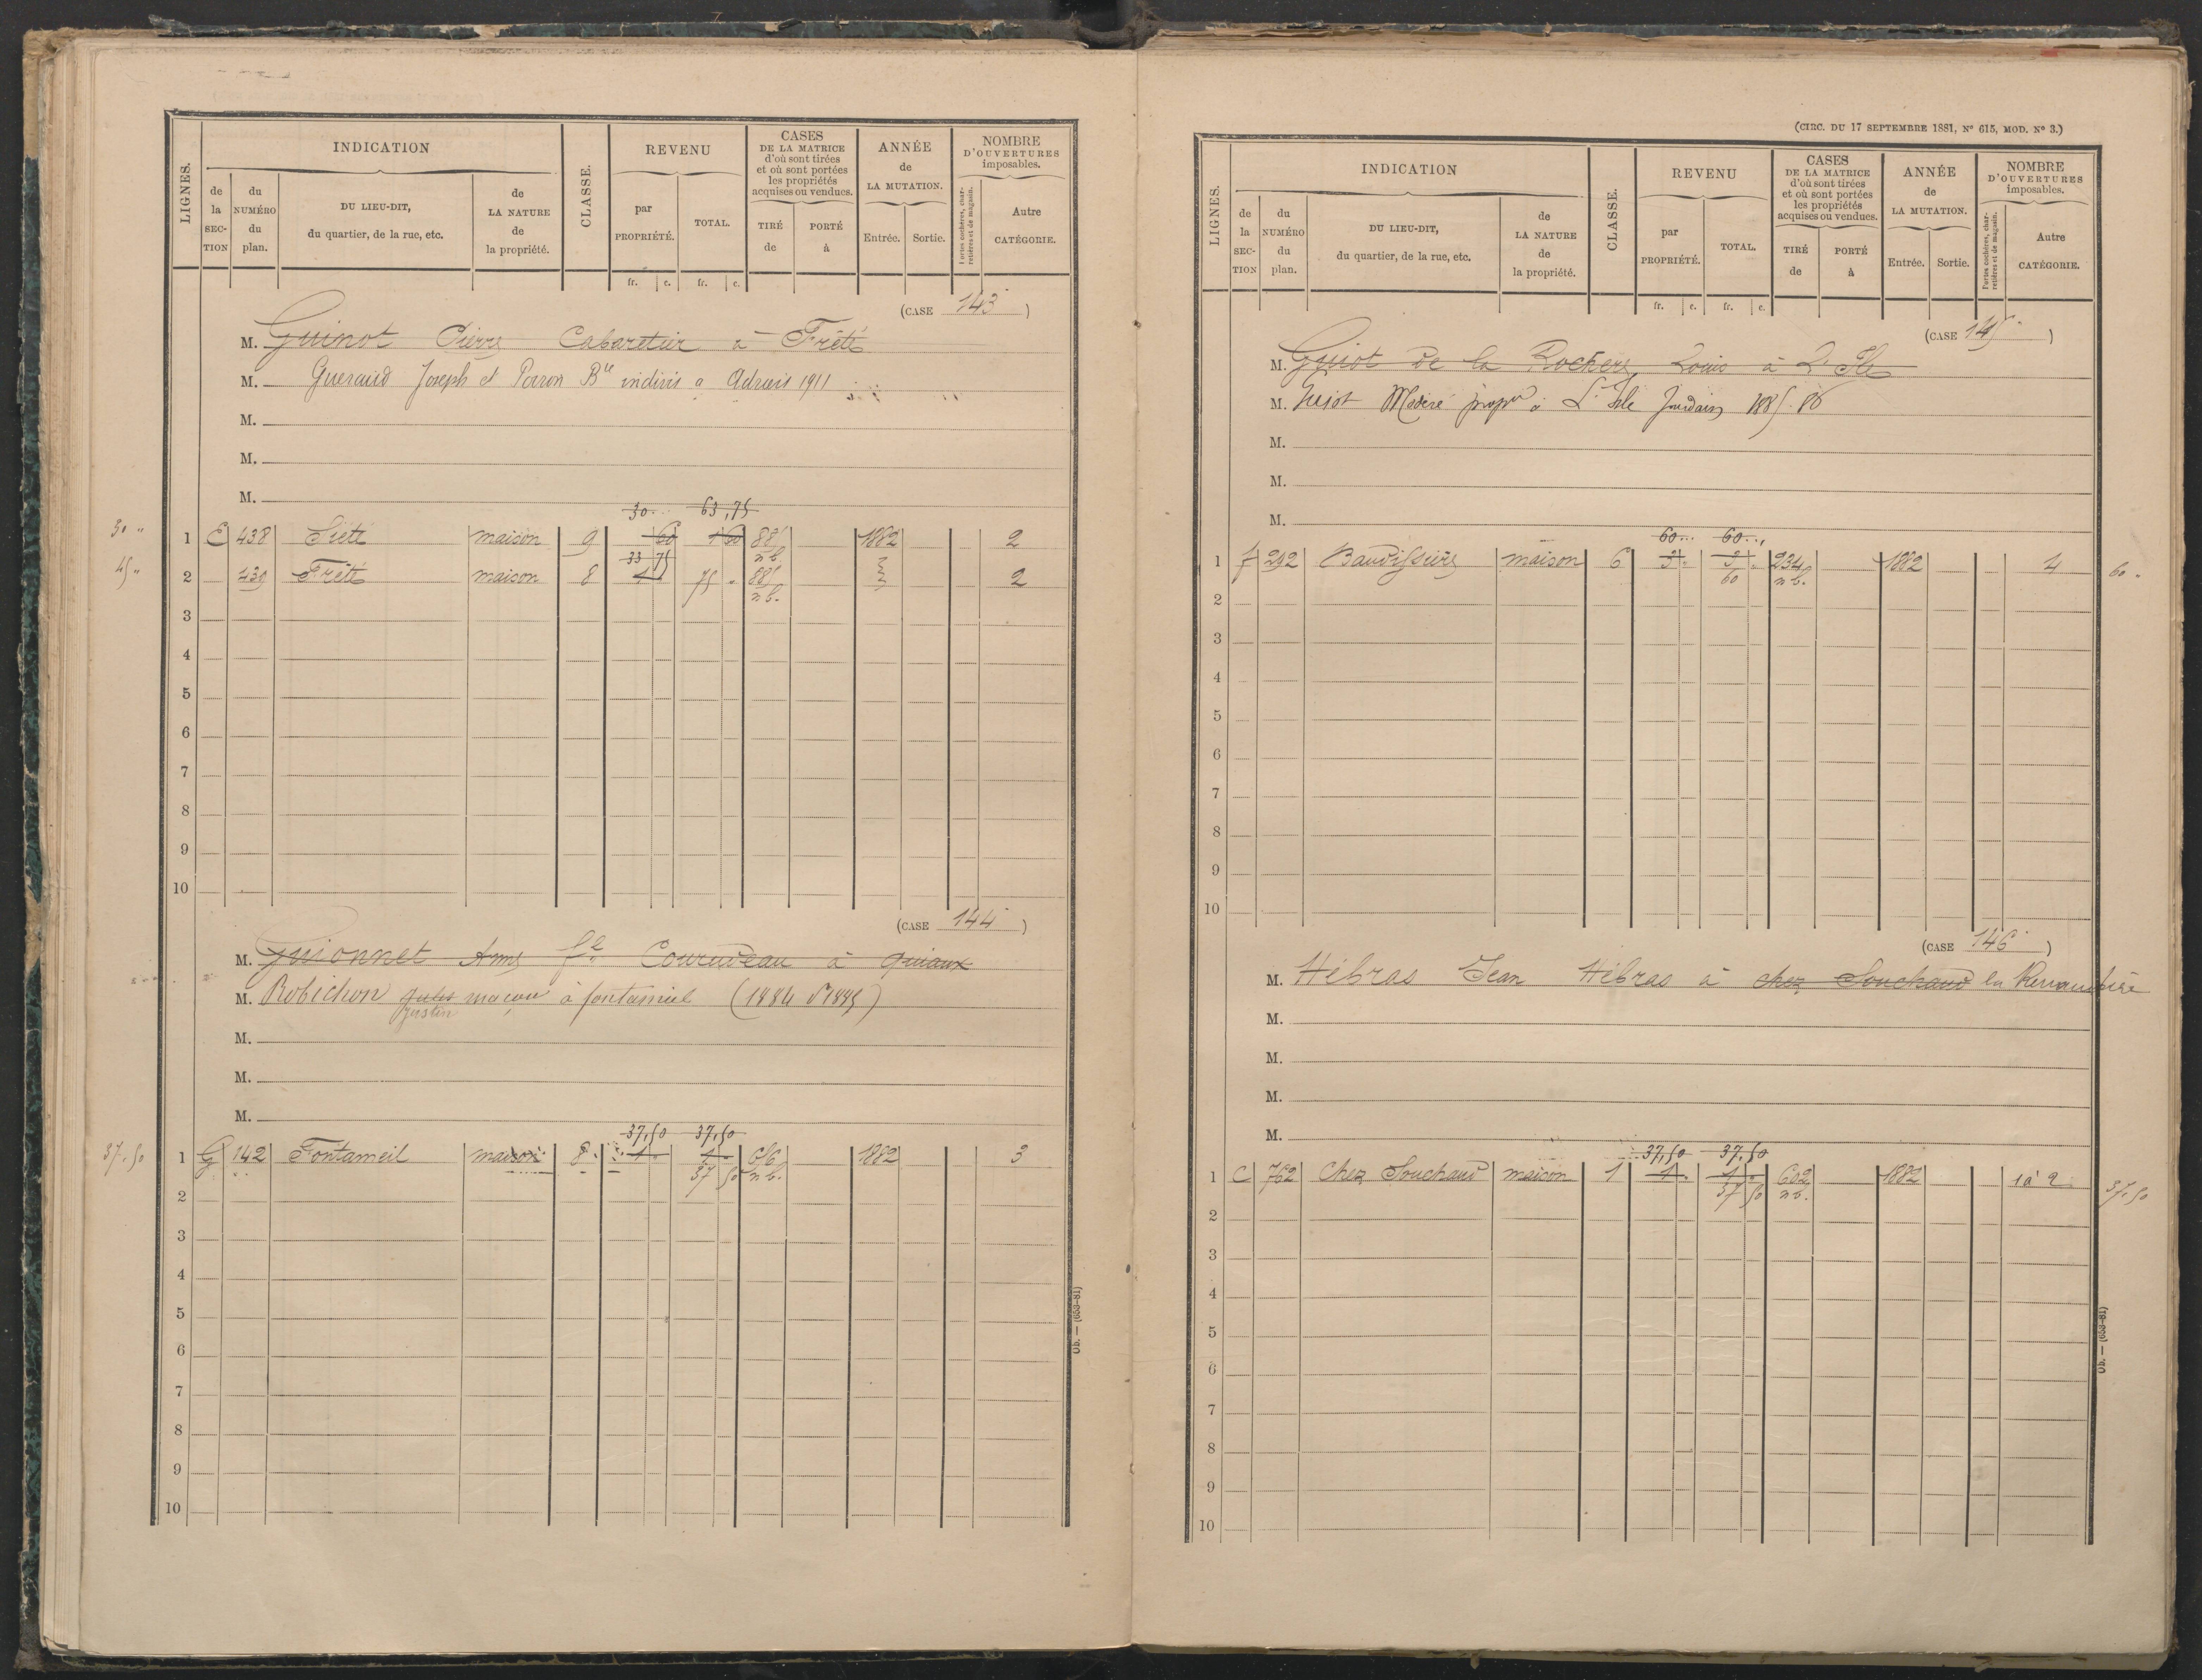 LIGNES.
INDICATION
de la SEC-TION
du NUMÉRO du plan.
DU LIEU-DIT, du quartier, de la rue, etc.
de LA NATURE de la propriété.
CLASSE.
REVENU
par PROPRIÉTÉ.
TOTAL.
CASES DE LA MATRICE d'où sont tirées et où sont portées les propriétés acquises ou vendues.
TIRÉ de
PORTÉ à
ANNÉE de LA MUTATION.
Entrée.
Sortie.
NOMBRE D'OUVERTURES imposables.
Portes cochères, charretières et de magasin.
Autre CATÉGORIE.
fr. c. fr. c.
(CASE 143)
M. Guinot Pierre Cabaretier à Frété
M. Gueraud Joseph et Poiron Ble indivis a Adriers 1911
M.
M.
M.
30 63,75
30 " 1 E 438 Frété maison 9 60 1 60 88 1882 2
33 75 n b
45 " 2 439 Frété maison 8 1 75 88 2
n b.
3
4
5
6
7
8
9
10
(CASE 144)
M. Guionnet Anne fe Courudeau à Guiaux
M. Robichon Jules maçon à fontameil (1884 1885)
Justin
M.
M.
M.
37,50 37,50
37.50 1 G 142 Fontameil maison 8 1 1 1882 3
37 50 n b.
2
3
4
5
6
7
8
9
10
Ob. — (653-81)
(CIRC. DU 17 SEPTEMBRE 1881, N° 615, MOD. N° 3.)
LIGNES.
INDICATION
de la SEC-TION
du NUMÉRO du plan.
DU LIEU-DIT, du quartier, de la rue, etc.
de LA NATURE de la propriété.
CLASSE.
REVENU
par PROPRIÉTÉ.
TOTAL.
CASES DE LA MATRICE d'où sont tirées et où sont portées les propriétés acquises ou vendues.
TIRÉ de
PORTÉ à
ANNÉE de LA MUTATION.
Entrée.
Sortie.
NOMBRE D'OUVERTURES imposables.
Portes cochères, charretières et de magasin.
Autre CATÉGORIE.
fr. c. fr. c.
(CASE 145)
M. Guiot de la Rochere Louis à L'Ile
M. Guiot Médéré propre à L'Isle Jourdain 1885.86
M.
M.
M.
60 60
1 f 292 Baudissière maison 6 3 3 234 1882 4 60
60 n b.
2
3
4
5
6
7
8
9
10
(CASE 146)
M. Hébras Jean Hébras à chez Souchaud la Renaudière
M.
M.
M.
M.
37,50 37.50
1 C 762 Chez Souchaud maison 1 1 1 602 1882 1 à 2 37.50
37 50 n b.
2
3
4
5
6
7
8
9
10
Ob. — (653-81)